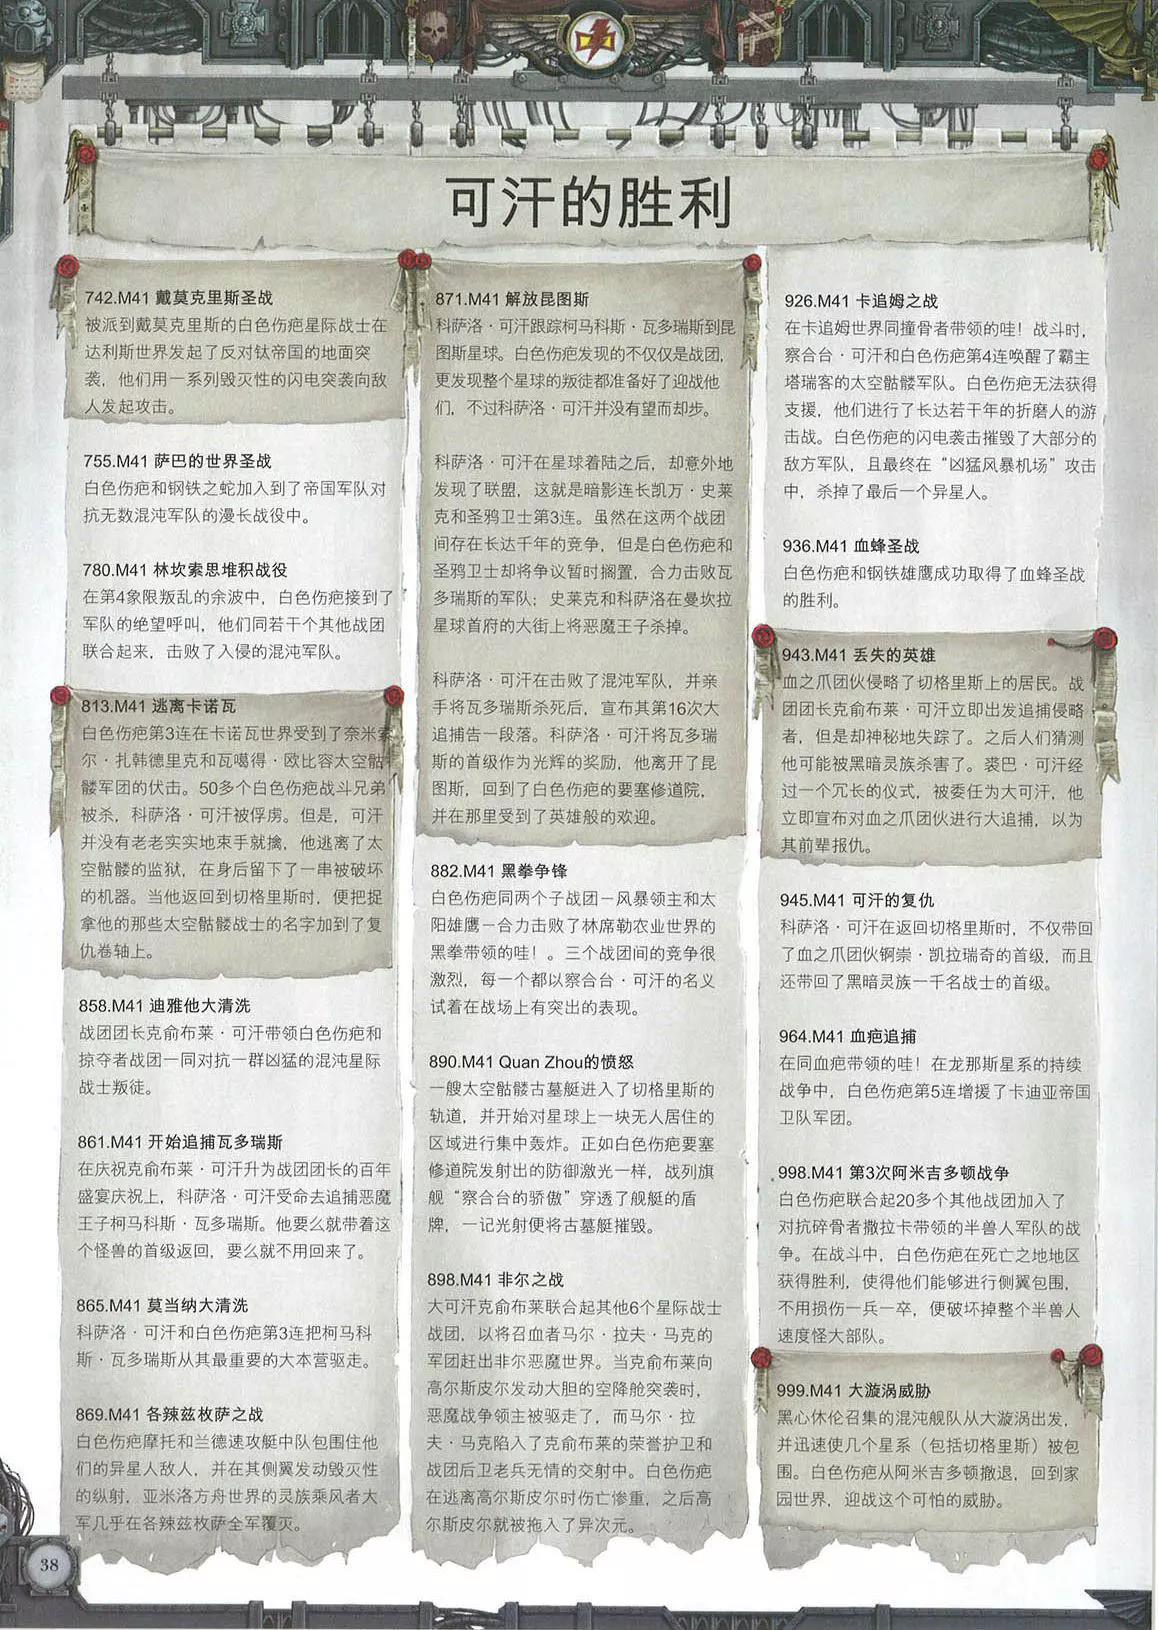 可汗的胜利
742.M41 戴莫克里斯圣战
被派到戴莫克里斯的白色伤疤星际战士在
达利斯世界发起了反对钛帝国的地面突
袭，他们用一系列毁灭性的闪电突袭向敌
人发起攻击。
755.M41 萨巴的世界圣战
白色伤疤和钢铁之蛇加入到了帝国军队对
抗无数混沌军队的漫长战役中。
780.M41 林坎索思堆积战役
在第4象限叛乱的余波中，白色伤疤接到了
军队的绝望呼叫，他们同若干个其他战团
联合起来，击败了入侵的混沌军队。
813.M41 逃离卡诺瓦
白色伤疤第3连在卡诺瓦世界受到了奈米索
尔·扎韩德里克和瓦噶得·欧比容太空骷
髅军团的伏击。50多个白色伤疤战斗兄弟
被杀，科萨洛·可汗被俘虏。但是，可汗
并没有老老实实地束手就擒，他逃离了太
空骷髅的监狱，在身后留下了一串被破坏
的机器。当他返回到切格里斯时，便把捉
拿他的那些太空骷髅战士的名字加到了复
仇卷轴上。
858.M41 迪雅他大清洗
战团团长克俞布莱·可汗带领白色伤疤和
掠夺者战团一同对抗一群凶猛的混沌星际
战士叛徒。
861.M41 开始追捕瓦多瑞斯
在庆祝克俞布莱·可汗升为战团团长的百年
盛宴庆祝上，科萨洛·可汗受命去追捕恶魔
王子柯马科斯·瓦多瑞斯。他要么就带着这
个怪兽的首级返回，要么就不用回来了。
865.M41 莫当纳大清洗
科萨洛·可汗和白色伤疤第3连把柯马科
斯·瓦多瑞斯从其最重要的大本营驱走。
869.M41 各辣兹枚萨之战
白色伤疤摩托和兰德速攻艇中队包围住他
们的异星人敌人，并在其侧翼发动毁灭性
的纵射，亚米洛方舟世界的灵族乘风者大
军几乎在各辣兹枚萨全军覆灭。
871.M41 解放昆图斯
科萨洛·可汗跟踪柯马科斯·瓦多瑞斯到昆
图斯星球。白色伤疤发现的不仅仅是战团，
更发现整个星球的叛徒都准备好了迎战他
们，不过科萨洛·可汗并没有望而却步。
科萨洛·可汗在星球着陆之后，却意外地
发现了联盟，这就是暗影连长凯万·史莱
克和圣鸦卫士第3连。虽然在这两个战团
间存在长达千年的竞争，但是白色伤疤和
圣鸦卫士却将争议暂时搁置，合力击败瓦
多瑞斯的军队；史莱克和科萨洛在曼坎拉
星球首府的大街上将恶魔王子杀掉。
科萨洛·可汗在击败了混沌军队，并亲
手将瓦多瑞斯杀死后，宣布其第16次大
追捕告一段落。科萨洛·可汗将瓦多瑞
斯的首级作为光辉的奖励，他离开了昆
图斯，回到了白色伤疤的要塞修道院，
并在那里受到了英雄般的欢迎。
882.M41 黑拳争锋
白色伤疤同两个子战团－风暴领主和太
阳雄鹰－合力击败了林席勒农业世界的
黑拳带领的哇！。三个战团间的竞争很
激烈，每一个都以察合台·可汗的名义
试着在战场上有突出的表现。
890.M41 Quan Zhou的愤怒
一艘太空骷髅古墓艇进入了切格里斯的
轨道，并开始对星球上一块无人居住的
区域进行集中轰炸。正如白色伤疤要塞
修道院发射出的防御激光一样，战列旗
舰“察合台的骄傲”穿透了舰艇的盾
牌，一记光射便将古墓艇摧毁。
898.M41 非尔之战
大可汗克俞布莱联合起其他6个星际战士
战团，以将召血者马尔·拉夫·马克的
军团赶出非尔恶魔世界。当克俞布莱向
高尔斯皮尔发动大胆的空降舱突袭时，
恶魔战争领主被驱走了，而马尔·拉
夫·马克陷入了克俞布莱的荣誉护卫和
战团后卫老兵无情的交射中。白色伤疤
在逃离高尔斯皮尔时伤亡惨重，之后高
尔斯皮尔就被拖入了异次元。
926.M41 卡追姆之战
在卡追姆世界同撞骨者带领的哇！战斗时，
察合台·可汗和白色伤疤第4连唤醒了霸主
塔瑞客的太空骷髅军队。白色伤疤无法获得
支援，他们进行了长达若干年的折磨人的游
击战。白色伤疤的闪电袭击摧毁了大部分的
敌方军队，且最终在“凶猛风暴机场”攻击
中，杀掉了最后一个异星人。
936.M41 血蜂圣战
白色伤疤和钢铁雄鹰成功取得了血蜂圣战
的胜利。
943.M41 丢失的英雄
血之爪团伙侵略了切格里斯上的居民。战
团团长克俞布莱·可汗立即出发追捕侵略
者，但是却神秘地失踪了。之后人们猜测
他可能被黑暗灵族杀害了。裘巴·可汗经
过一个冗长的仪式，被委任为大可汗，他
立即宣布对血之爪团伙进行大追捕，以为
其前辈报仇。
945.M41 可汗的复仇
科萨洛·可汗在返回切格里斯时，不仅带回
了血之爪团伙锕崇·凯拉瑞奇的首级，而且
还带回了黑暗灵族一千名战士的首级。
964.M41 血疤追捕
在同血疤带领的哇！在龙那斯星系的持续
战争中，白色伤疤第5连增援了卡迪亚帝国
卫队军团。
998.M41 第3次阿米吉多顿战争
白色伤疤联合起20多个其他战团加入了
对抗碎骨者撒拉卡带领的半兽人军队的战
争。在战斗中，白色伤疤在死亡之地地区
获得胜利，使得他们能够进行侧翼包围，
不用损伤一兵一卒，便破坏掉整个半兽人
速度怪大部队。
999.M41 大漩涡威胁
黑心休伦召集的混沌舰队从大漩涡出发，
并迅速使几个星系（包括切格里斯）被包
围。白色伤疤从阿米吉多顿撤退，回到家
园世界，迎战这个可怕的威胁。
38